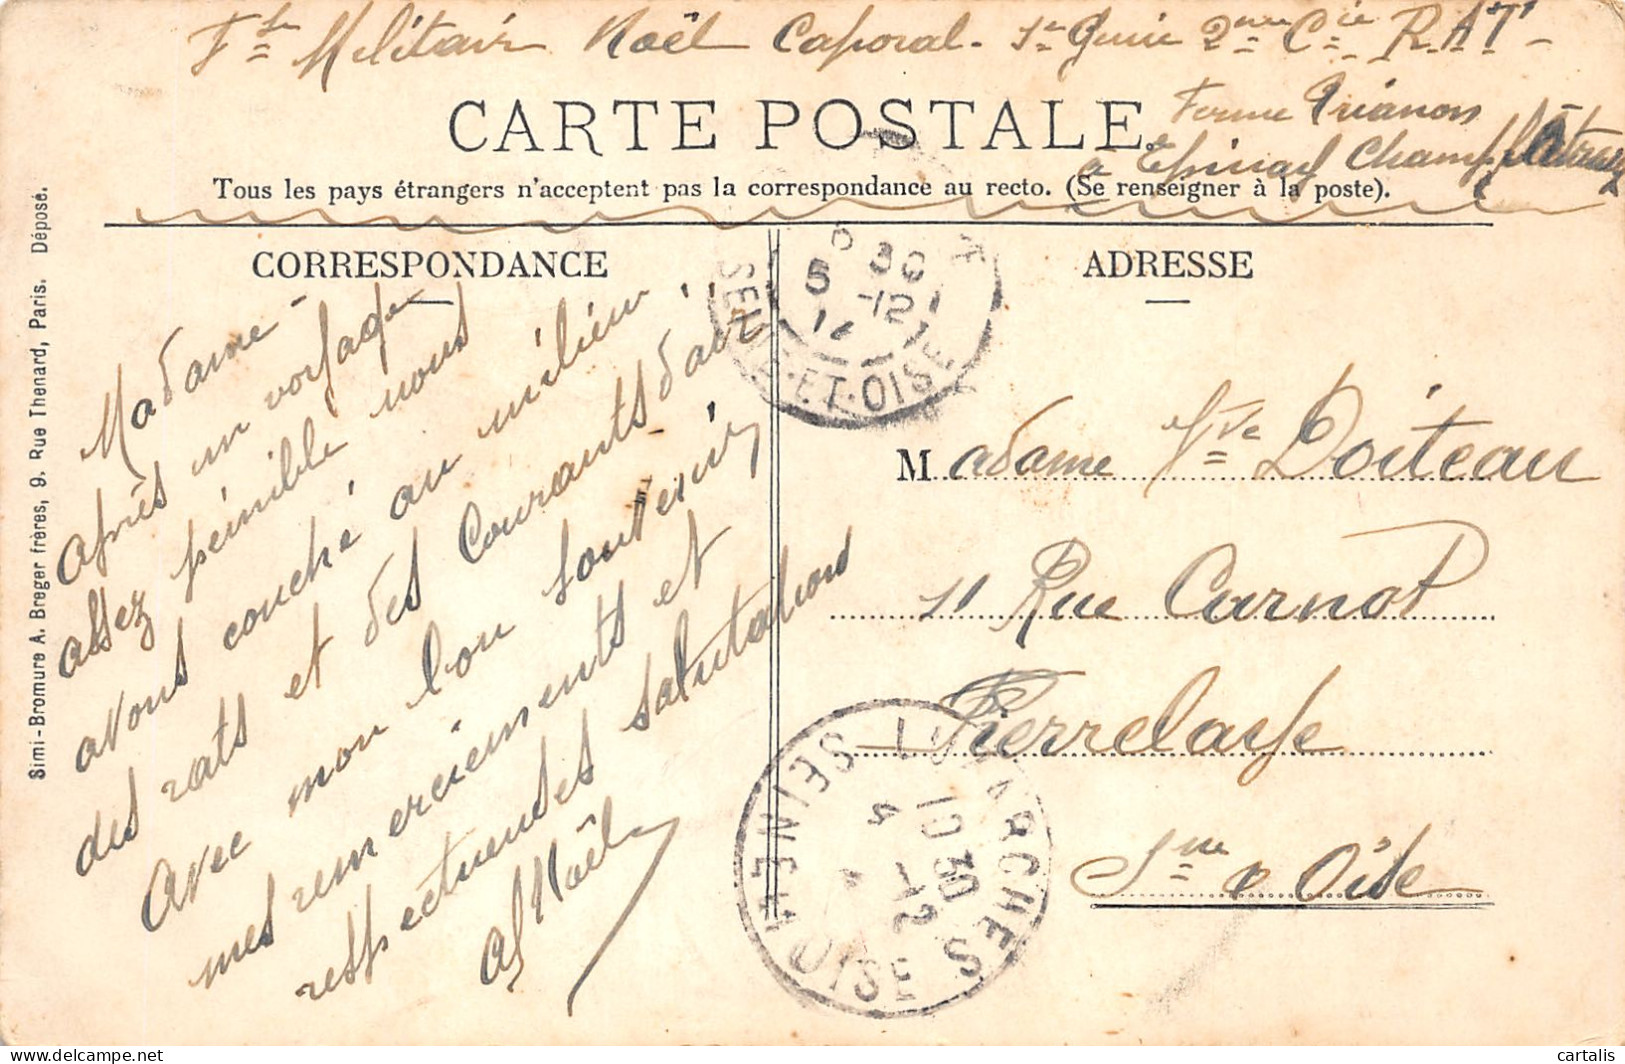 Fse Militaire Noël Caporal - 1er Génie 2me Cie R.A.T.
CARTE POSTALE
Ferme Trianon
à Epinay Champlatreux
Tous les pays étrangers n'acceptent pas la correspondance au recto. (Se renseigner à la poste).
Simi-Bromure A. Breger frères, 9, Rue Thenard, Paris. Déposé.
CORRESPONDANCE
Madame -
après un voyage
assez pénible nous
avons couché au milieu
des rats et des courants d'air
avec mon bon souvenir
mes remerciements et
respectueuses salutations
Noël
ADRESSE
Madame Vve Doiteau
11 Rue Carnot
Pierrelaye
Sne & Oise
5 -12
SEINE-ET-OISE
LUZARCHES
10 30
4 -12
SEINE-ET-OISE
cartalis
www.delcampe.net